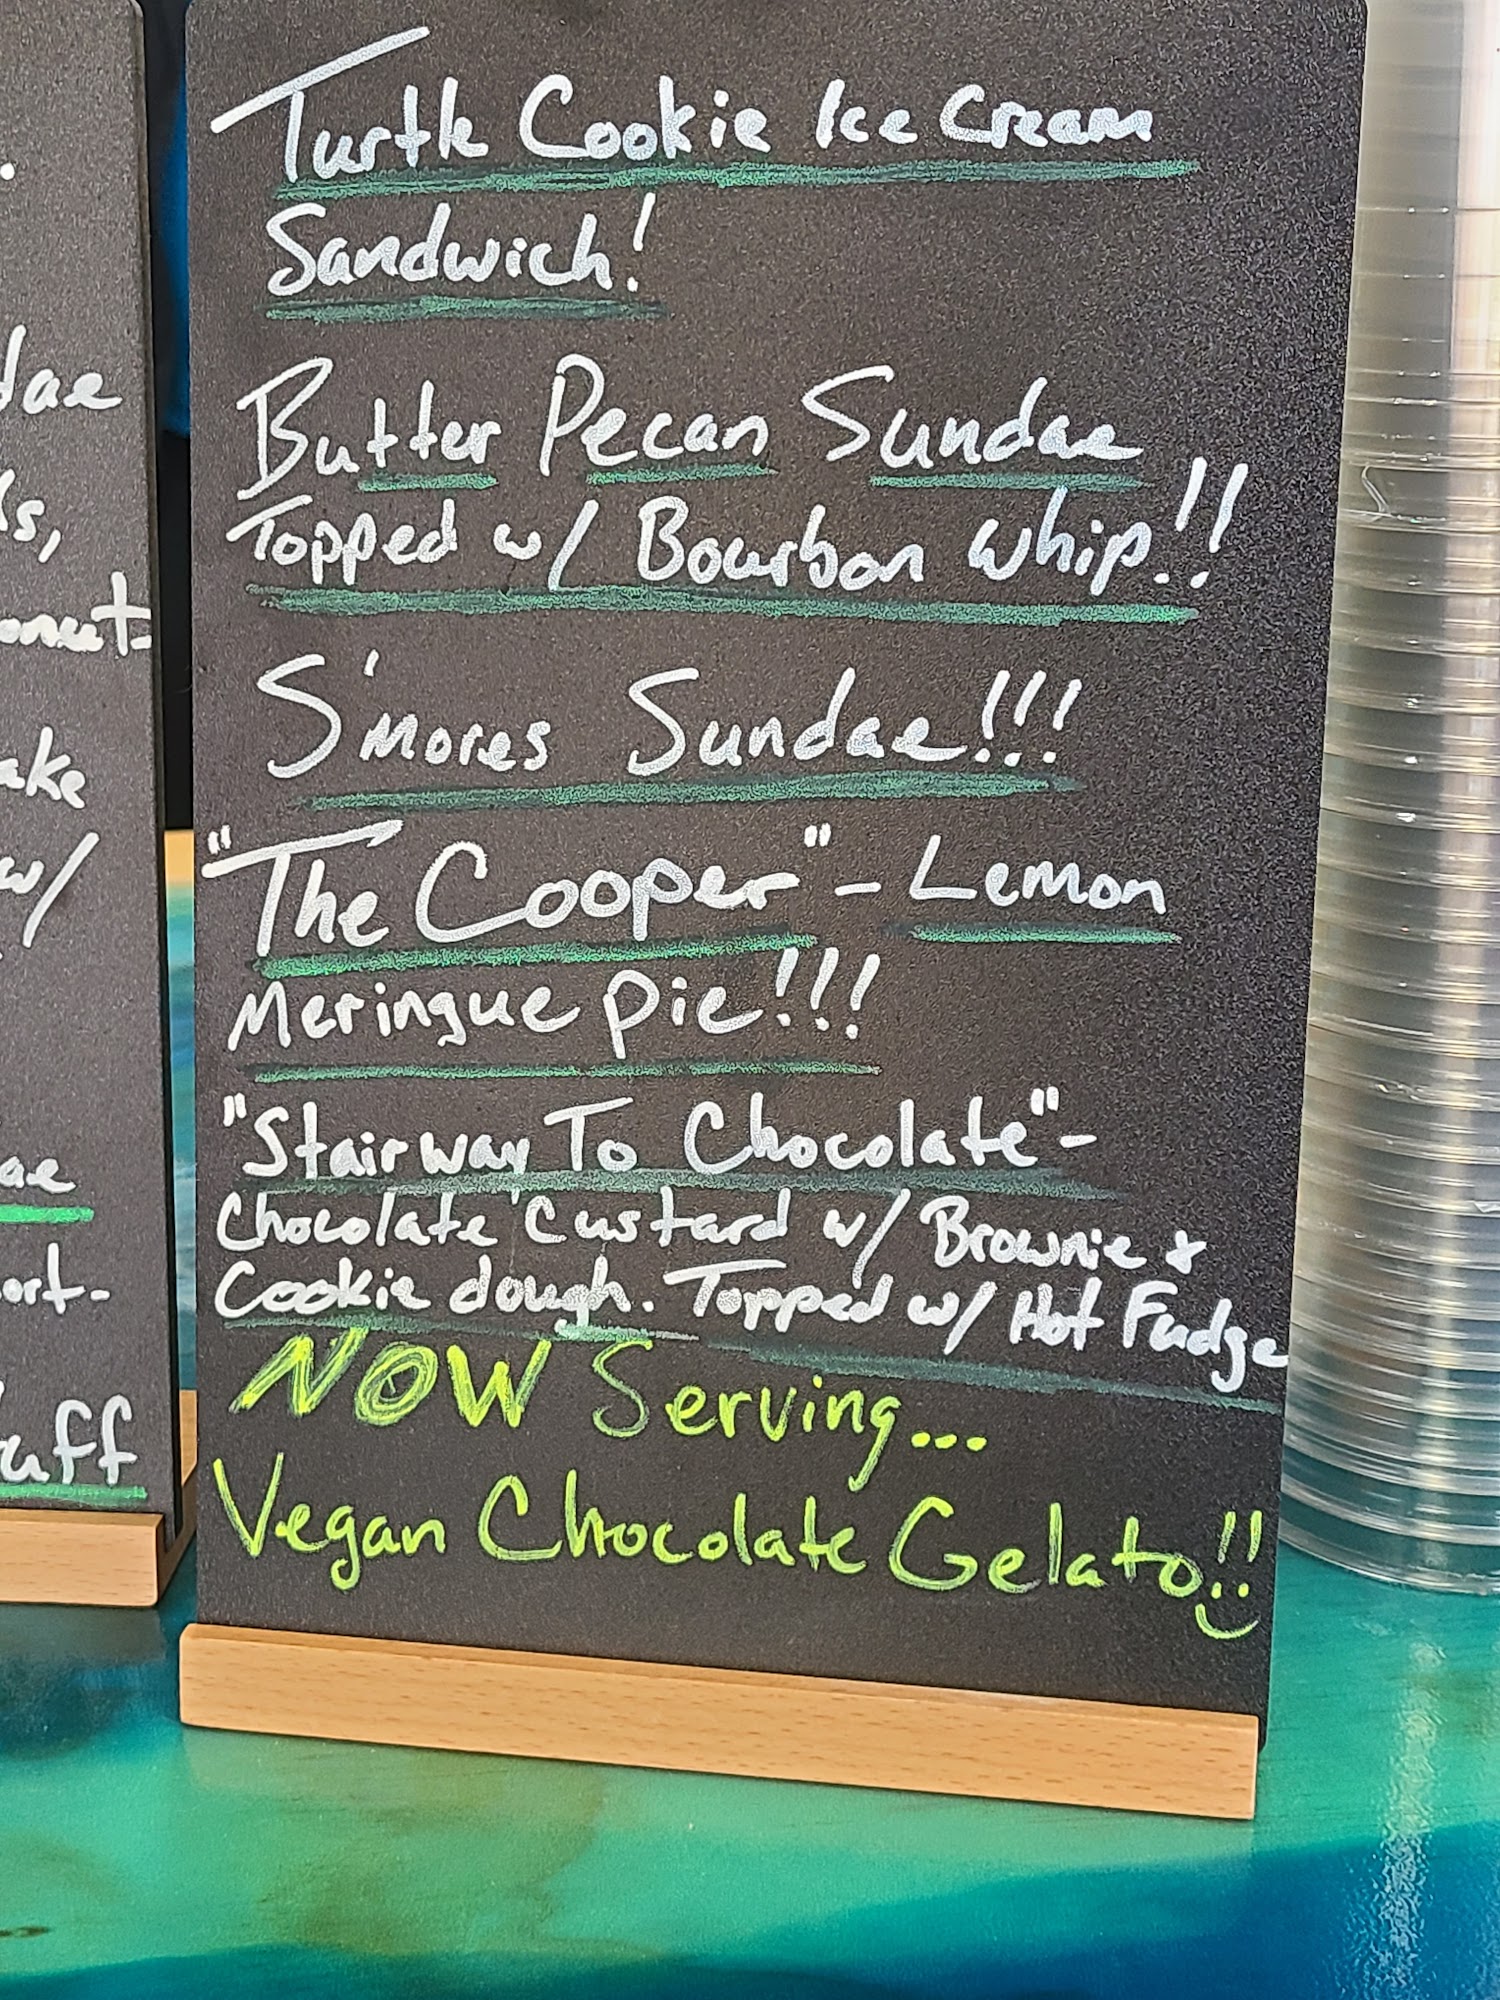 Turtle Cookie Ice Cream
Sandwich!
Butter Pecan Sundae
Topped w/ Bourbon whip!!
S'mores Sundae!!!
"The Cooper" - Lemon
Meringue pie!!!
"Stairway To Chocolate" -
Chocolate Custard w/ Brownie +
Cookie dough. Topped w/ Hot Fudge
NOW Serving...
Vegan Chocolate Gelato!!
w/